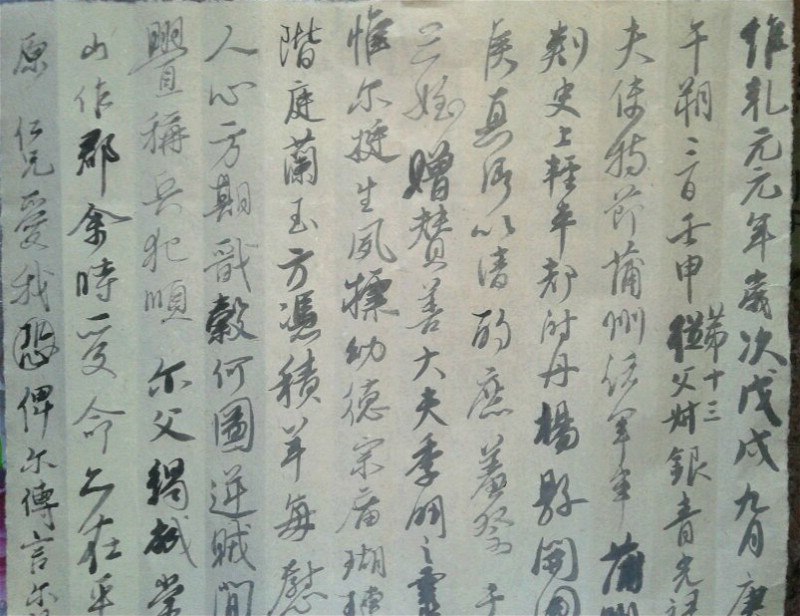 維乹元元年歲次戊戌九月庚
午朔三日壬申第十三從父叔銀青光祿
夫使持節蒲州諸軍事蒲州
刺史上輕車都尉丹楊縣開國
侯真卿以清酌庶羞祭于
亡姪贈贊善大夫季明之靈
惟尔挺生夙標幼德宗廟瑚璉
階庭蘭玉方憑積善每慰
人心方期戩穀何圖逆賊閒
釁稱兵犯順尔父竭誠常
山作郡余時受命亦在平
原仁兄愛我恐俾尔傳言尔